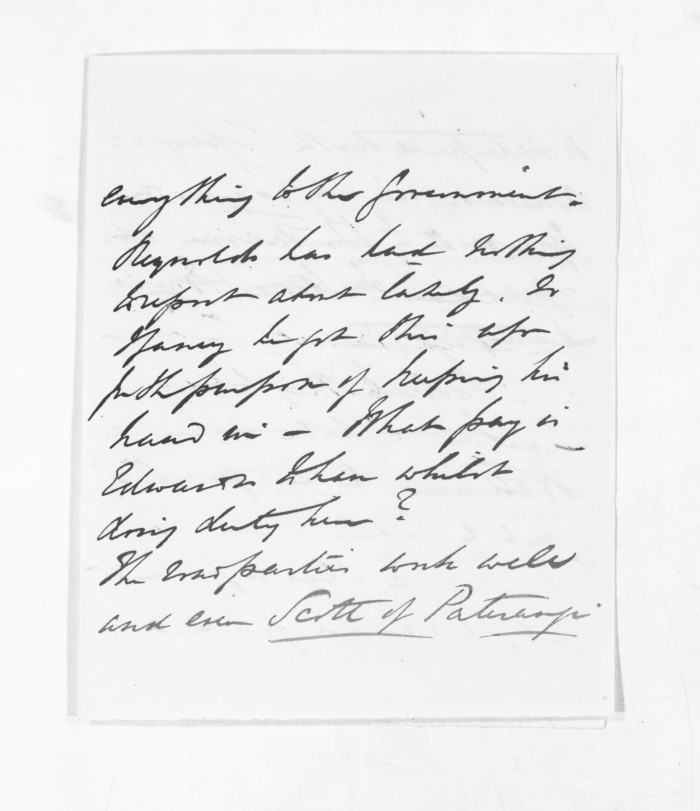 everything to the Government.
Reynolds has had nothing
to report about lately. So
I fancy he got this up
for the purpose of keeping his
hand in — What pay is
Edwards to have whilst
doing duty here?
The road parties work well
and even Scott of Paterangi